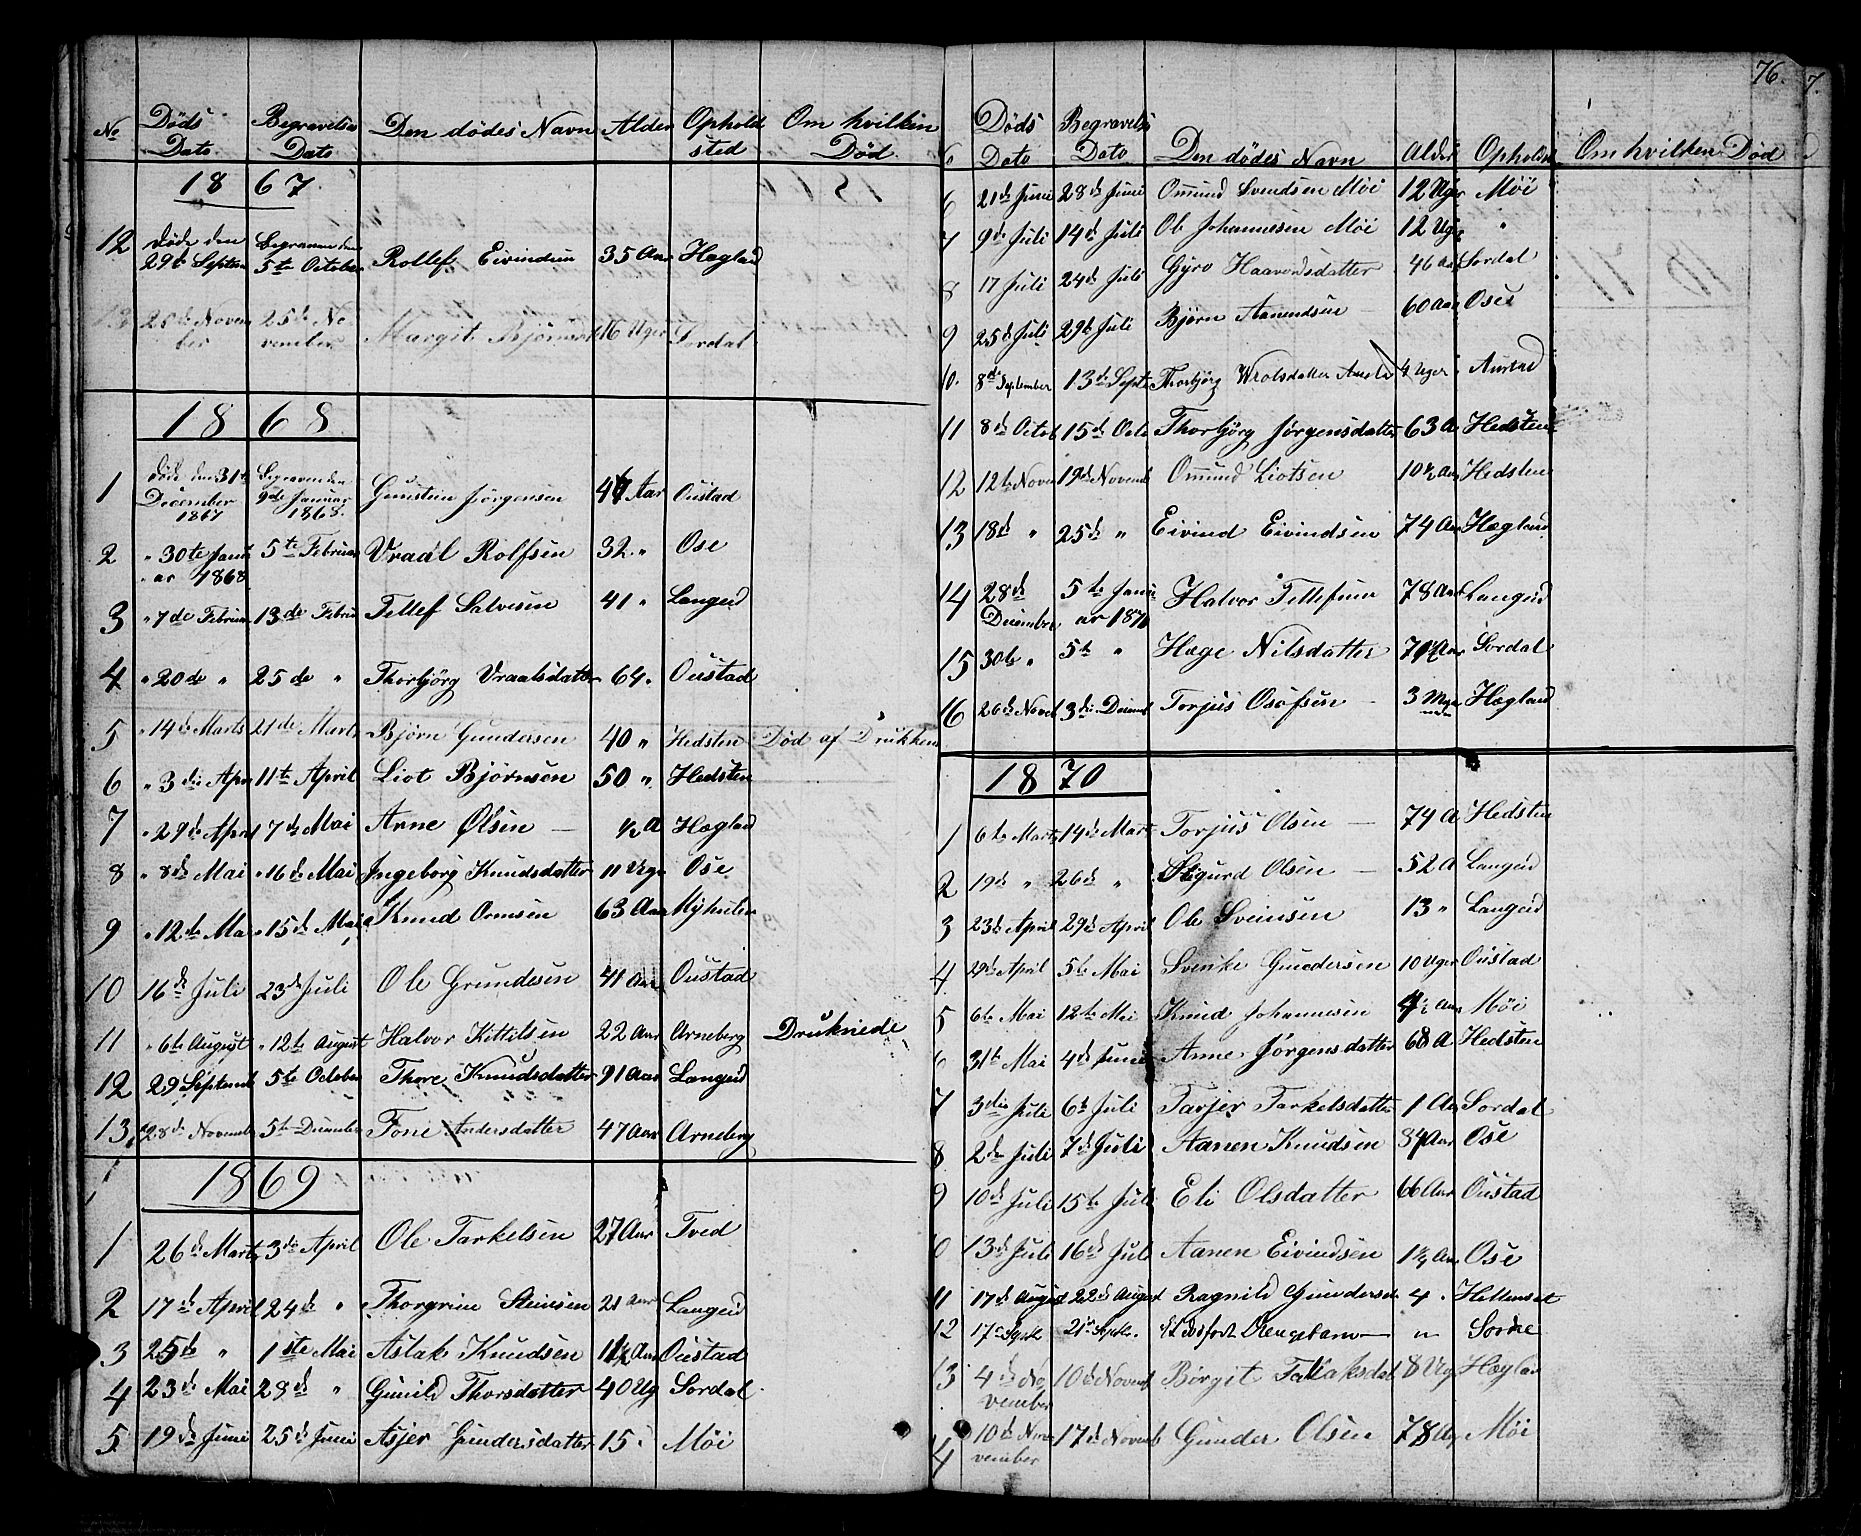 No Døds Dato Begravelses Dato Den dødes Navn Alder Ophold sted Om hvilken Død
1867
12 døde den 29de Septem Begraven den 5te October Rollef Eivindsen 35 Aar Hægland
13 20de Novem ber 25de No vember Margit Bjørnsdt 16 Uger Sordal
1868
1 døde den 31te December 1867 Begraven den 9de Januar 1868. Gunstein Jørgensen Aar Oustad
2 " 30te Janu ar 1868 5te Februar Vraal Rolfsen 32 " Ose
3 " 7de Februar 13de Februar Tellef Salvesen 41 " Langeid
4 " 20de " 25de " Thorbjørg Vraalsdatter 64 " Oustad
5 " 14de Marts 21de Marts Bjørn Gundersen 40 " Hedsten Død af Drukken
6 " 3die Apri 11te April Liot Bjørnsen 50 " Hedsten
7 " 29de April 7de Mai Arne Olsen — ½ A Hægland
8 " 8de Mai " 16de Mai Ingeborg Knudsdatter 11 Uge Ose
9 " 12te Mai " 15de Mai Knud Ormsen 63 Aar
10 16de Juli 23de Juli Ole Gundersen 41 Aar Oustad
11 " 6te August " 12te August Halvor Kittilsen 22 Aar Arneberg Druknede
12 29 Septemb 5te October Thore Knudsdatter 91 Aar Langeid
13 28de Novembr 5te December Tone Andersdatter 47 Aar Arneberg
1869
1 26de Marts 3die April Ole Tarkelsen 27 Aar Tved
2 17de April 24de " Thorgrim Steinsen 21 Aar Langeid
3 25de " 1ste Mai Aslak Knudsen 1½ Aar Oustad
4 23de Mai 28de " Gunild Thorsdatter 40 Ug Sordal
5 19de Juni 25de Juni Asjer Gundersdatter 15 " Møi
76.
Døds Dato Begravelses Dato Den dødes Navn Alder Opholds Om hvilken Død
6 21de Juni 28de Juni Omund Svendsen Møi 12 Uger Møi
7 9de Juli 14de Juli Ole Johannesen Møi 12 Uge "
8 17 Juli 24de Juli Gyro Haavordsdatter 46 aar Sordal
9 25de Juli 29de Juli Bjørn Aanundsen 60 aar Ose
10. 8de September 13de Sept. Thorbjørg Wrolsdatter 4 Uger Austad
11 8de Octob 15de Octo Thorbjørg Jørgensdatter 63 A Hedsten
12 12te Novem 19de Novemb Omund Liotsen 10½ Aar Hedsten
13 18de " 25de " Eivind Eivindsen 74 Aar Hægland
14 28de December 5te Janu ar 1870 Halvor Tellefsen 78 Aar Langeid
15 30te " 5te " Hæge Nilsdatter Aar Sordal
16 26de Novb 3die Decemb Torjus Osofsen — 3 Hægland
1870
1 6te Marts 14de Marts Torjus Olsen — 74 A Hedsten
2 19de " 26de " Sigurd Olsen — 52 A Langeid
3 23de April 29de April Ole Sveinsen 13 " Langeid
4 29de April 5te Mai Svenke Gundersen 10 Uger Oustad
5 6te Mai 12te Mai Knud Johannesen Aar Møi
6 31te Mai 4de Juni Anne Jørgensdatter 68 A Hedsten
7 3die Juli 6te Juli Tarjer Tarkelsdatter 1 Aar Sordal
8 2den Juli 7de Juli Aanen Knudsen Aar Ose
9 10de Juli 15te Juli Eli Olsdatter 66 Aar Oustad
10 13de Juli 16de Juli Aanen Eivindsen 1½ Aar Ose
11 17de August 22de August Ragnild Gundersd 4 "
12 17 Sept. 21 Sept. Et " Sordal
13 4de No vember 10de Novemb Birgit 8 Ug Hæglan
14 10de No vember 17de Novemb Gunder Olsen Møi